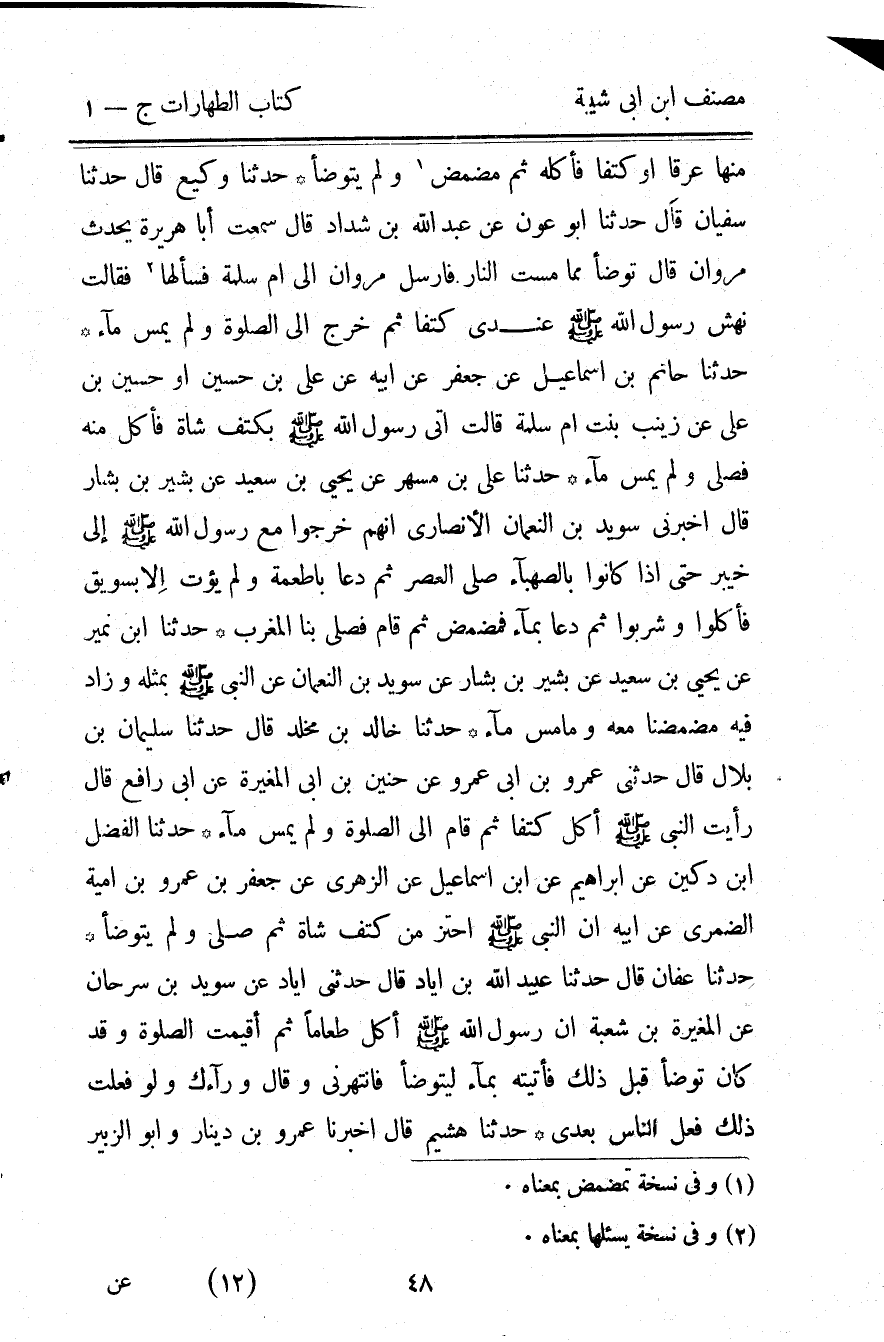 مصنف ابن ابى شيبة كتاب الطهارات ج — ١
منها عرقا او كتفا فأكله ثم مضمض ١ و لم يتوضأ * حدثنا وكيع قال حدثنا
سفيان قال حدثنا ابو عون عن عبد الله بن شداد قال سمعت أبا هريرة يحدث
مروان قال توضأ مما مست النار فارسل مروان الى ام سلمة فسألها ٢ فقالت
نهش رسول الله ﷺ عنــدى كتفا ثم خرج الى الصلوة و لم يمس مآء *
حدثنا حاتم بن اسماعيل عن جعفر عن ابيه عن على بن حسين او حسين بن
على عن زينب بنت ام سلمة قالت اتى رسول الله ﷺ بكتف شاة فأكل منه
فصلى و لم يمس مآء * حدثنا على بن مسهر عن يحيى بن سعيد عن بشير بن بشار
قال اخبرنى سويد بن النعمان الأنصارى انهم خرجوا مع رسول الله ﷺ إلى
خيبر حتى اذا كانوا بالصهبآء صلى العصر ثم دعا باطعمة و لم يؤت إلابسويق
فأكلوا و شربوا ثم دعا بمآء فمضمض ثم قام فصلى بنا المغرب * حدثنا ابن نمير
عن يحيى بن سعيد عن بشير بن بشار عن سويد بن النعمان عن النبى ﷺ بمثله و زاد
فيه مضمضنا معه و مامس مآء * حدثنا خالد بن مخلد قال حدثنا سليمان بن
بلال قال حدثنى عمرو بن ابى عمرو عن حنين بن ابى المغيرة عن ابى رافع قال
رأيت النبى ﷺ أكل كتفا ثم قام الى الصلوة و لم يمس مآء * حدثنا الفضل
ابن دكين عن ابراهيم عن ابن اسماعيل عن الزهرى عن جعفر بن عمرو بن امية
الضمرى عن ابيه ان النبى ﷺ احتز من كتف شاة ثم صلى و لم يتوضأ *
حدثنا عفان قال حدثنا عبيد الله بن اياد قال حدثنى اياد عن سويد بن سرحان
عن المغيرة بن شعبة ان رسول الله ﷺ أكل طعاماً ثم أقيمت الصلوة و قد
كان توضأ قبل ذلك فأتيته بمآء ليتوضأ فانتهرنى و قال و رآءك و لو فعلت
ذلك فعل الناس بعدى * حدثنا هشيم قال اخبرنا عمرو بن دينار و ابو الزبير
(١) و فى نسخة تمضمض بمعناه .
(٢) و فى نسخة يسئلها بمعناه .
٤٨ (١٢) عن